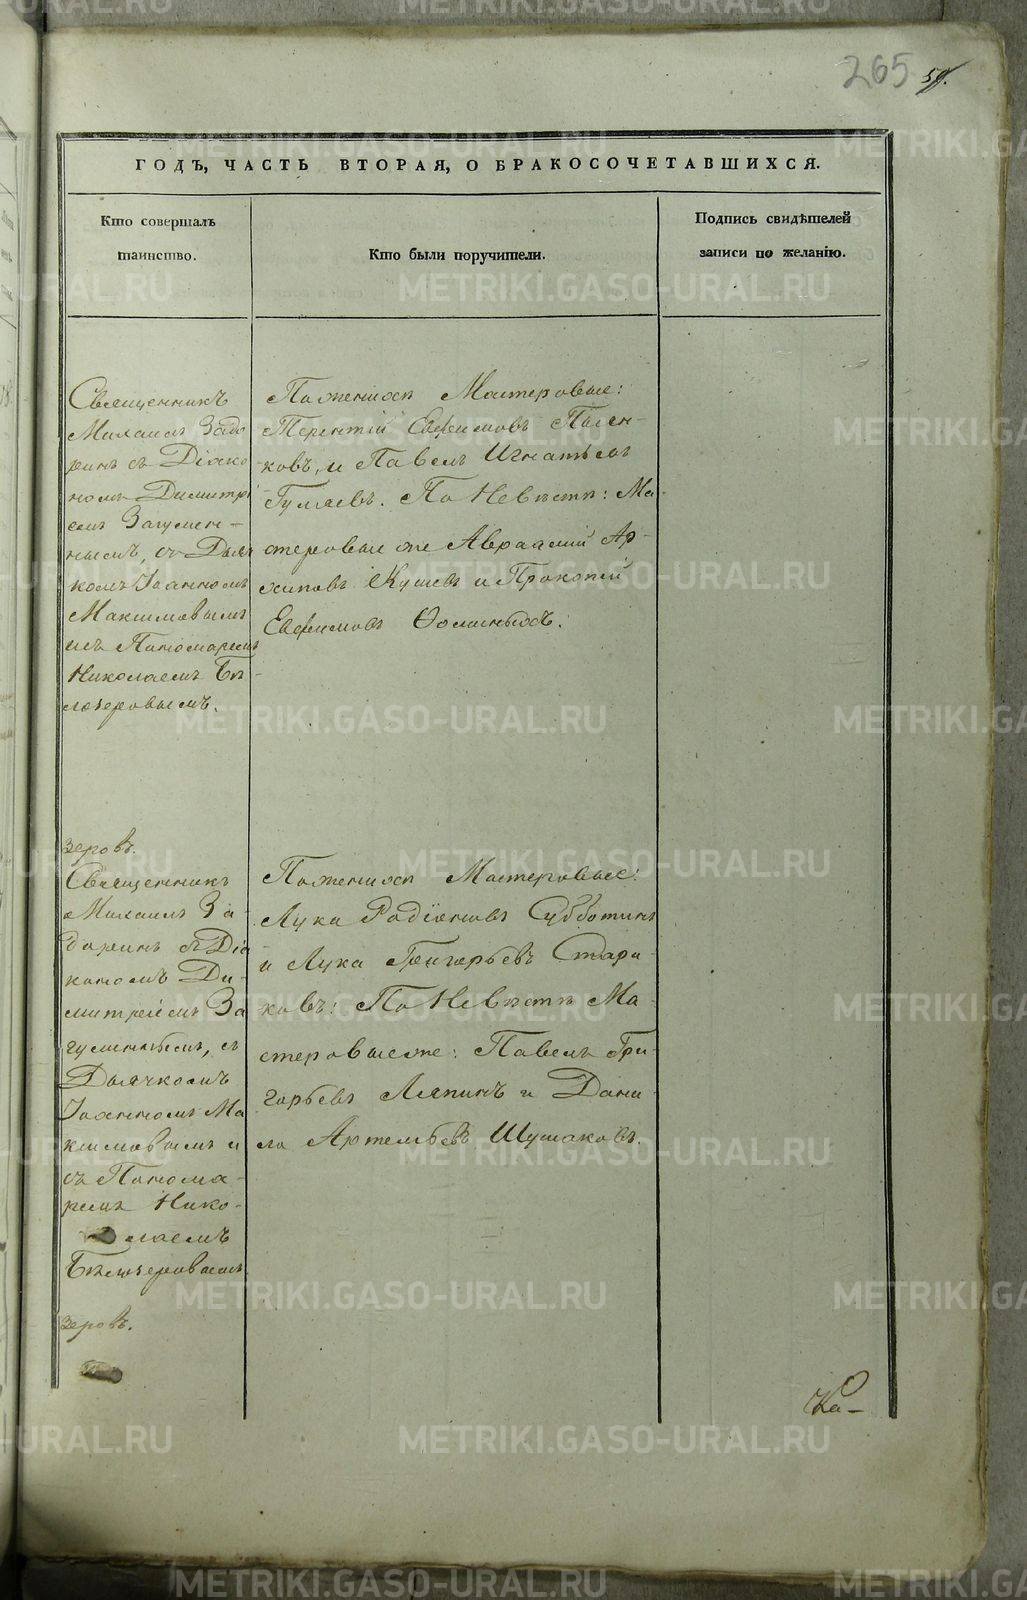 265 59.
ГОДЪ, ЧАСТЬ ВТОРАЯ, О БРАКОСОЧЕТАВШИХСЯ.
Кто совершалъ
таинство.
Кто были поручители.
Подпись свидѣтелей
записи по желанію.
Священникъ
Михаилъ Задо
ринъ съ Діако
номъ Димитрі
емъ Загумен-
нымъ, съ Дьяч
комъ Іоанномъ
Максимовымъ
и съ Пономаремъ
Николаемъ Бѣ-
лозеровымъ.
По женихѣ Мастеровые:
Терентій Евфимовъ Пален-
ковъ, и Павелъ Игнатьевъ
Гуляевъ. По Невѣстѣ: Ма-
стеровые же Авраамий Ар-
хиповъ и Прокопій
Евфимовъ Ѳоминыхъ.
зеровъ.
Священникъ
Михаилъ За-
доринъ съ Діа
кономъ Ди-
митріемъ За
гуменнымъ, съ
Дьячкомъ
Іоанномъ Ма
ксимовымъ и
съ Понома-
ремъ Нико-
лаемъ
Бѣлозеровымъ.
зеровъ.
По женихѣ Мастеровые:
Лука Родіоновъ Субботинъ
и Лука Григорьевъ Стари-
ковъ: По Невѣстѣ Ма-
стеровые же: Павелъ Гри-
горьевъ Ляпинъ и Дани-
ло Артемьевъ Шушаковъ.
Ка-
METRIKI.GASO-URAL.RU